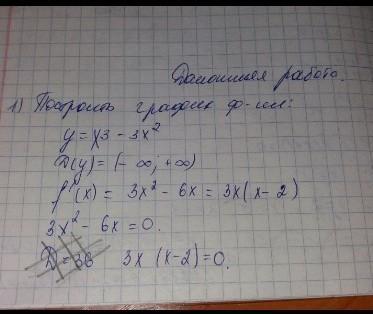 Домашняя работа.
1) Построить график ф-ции:
y = x3 - 3x²
D(y) = (-∞; +∞)
f'(x) = 3x² - 6x = 3x(x-2)
3x² - 6x = 0.
D = 36 3x (x-2) = 0.